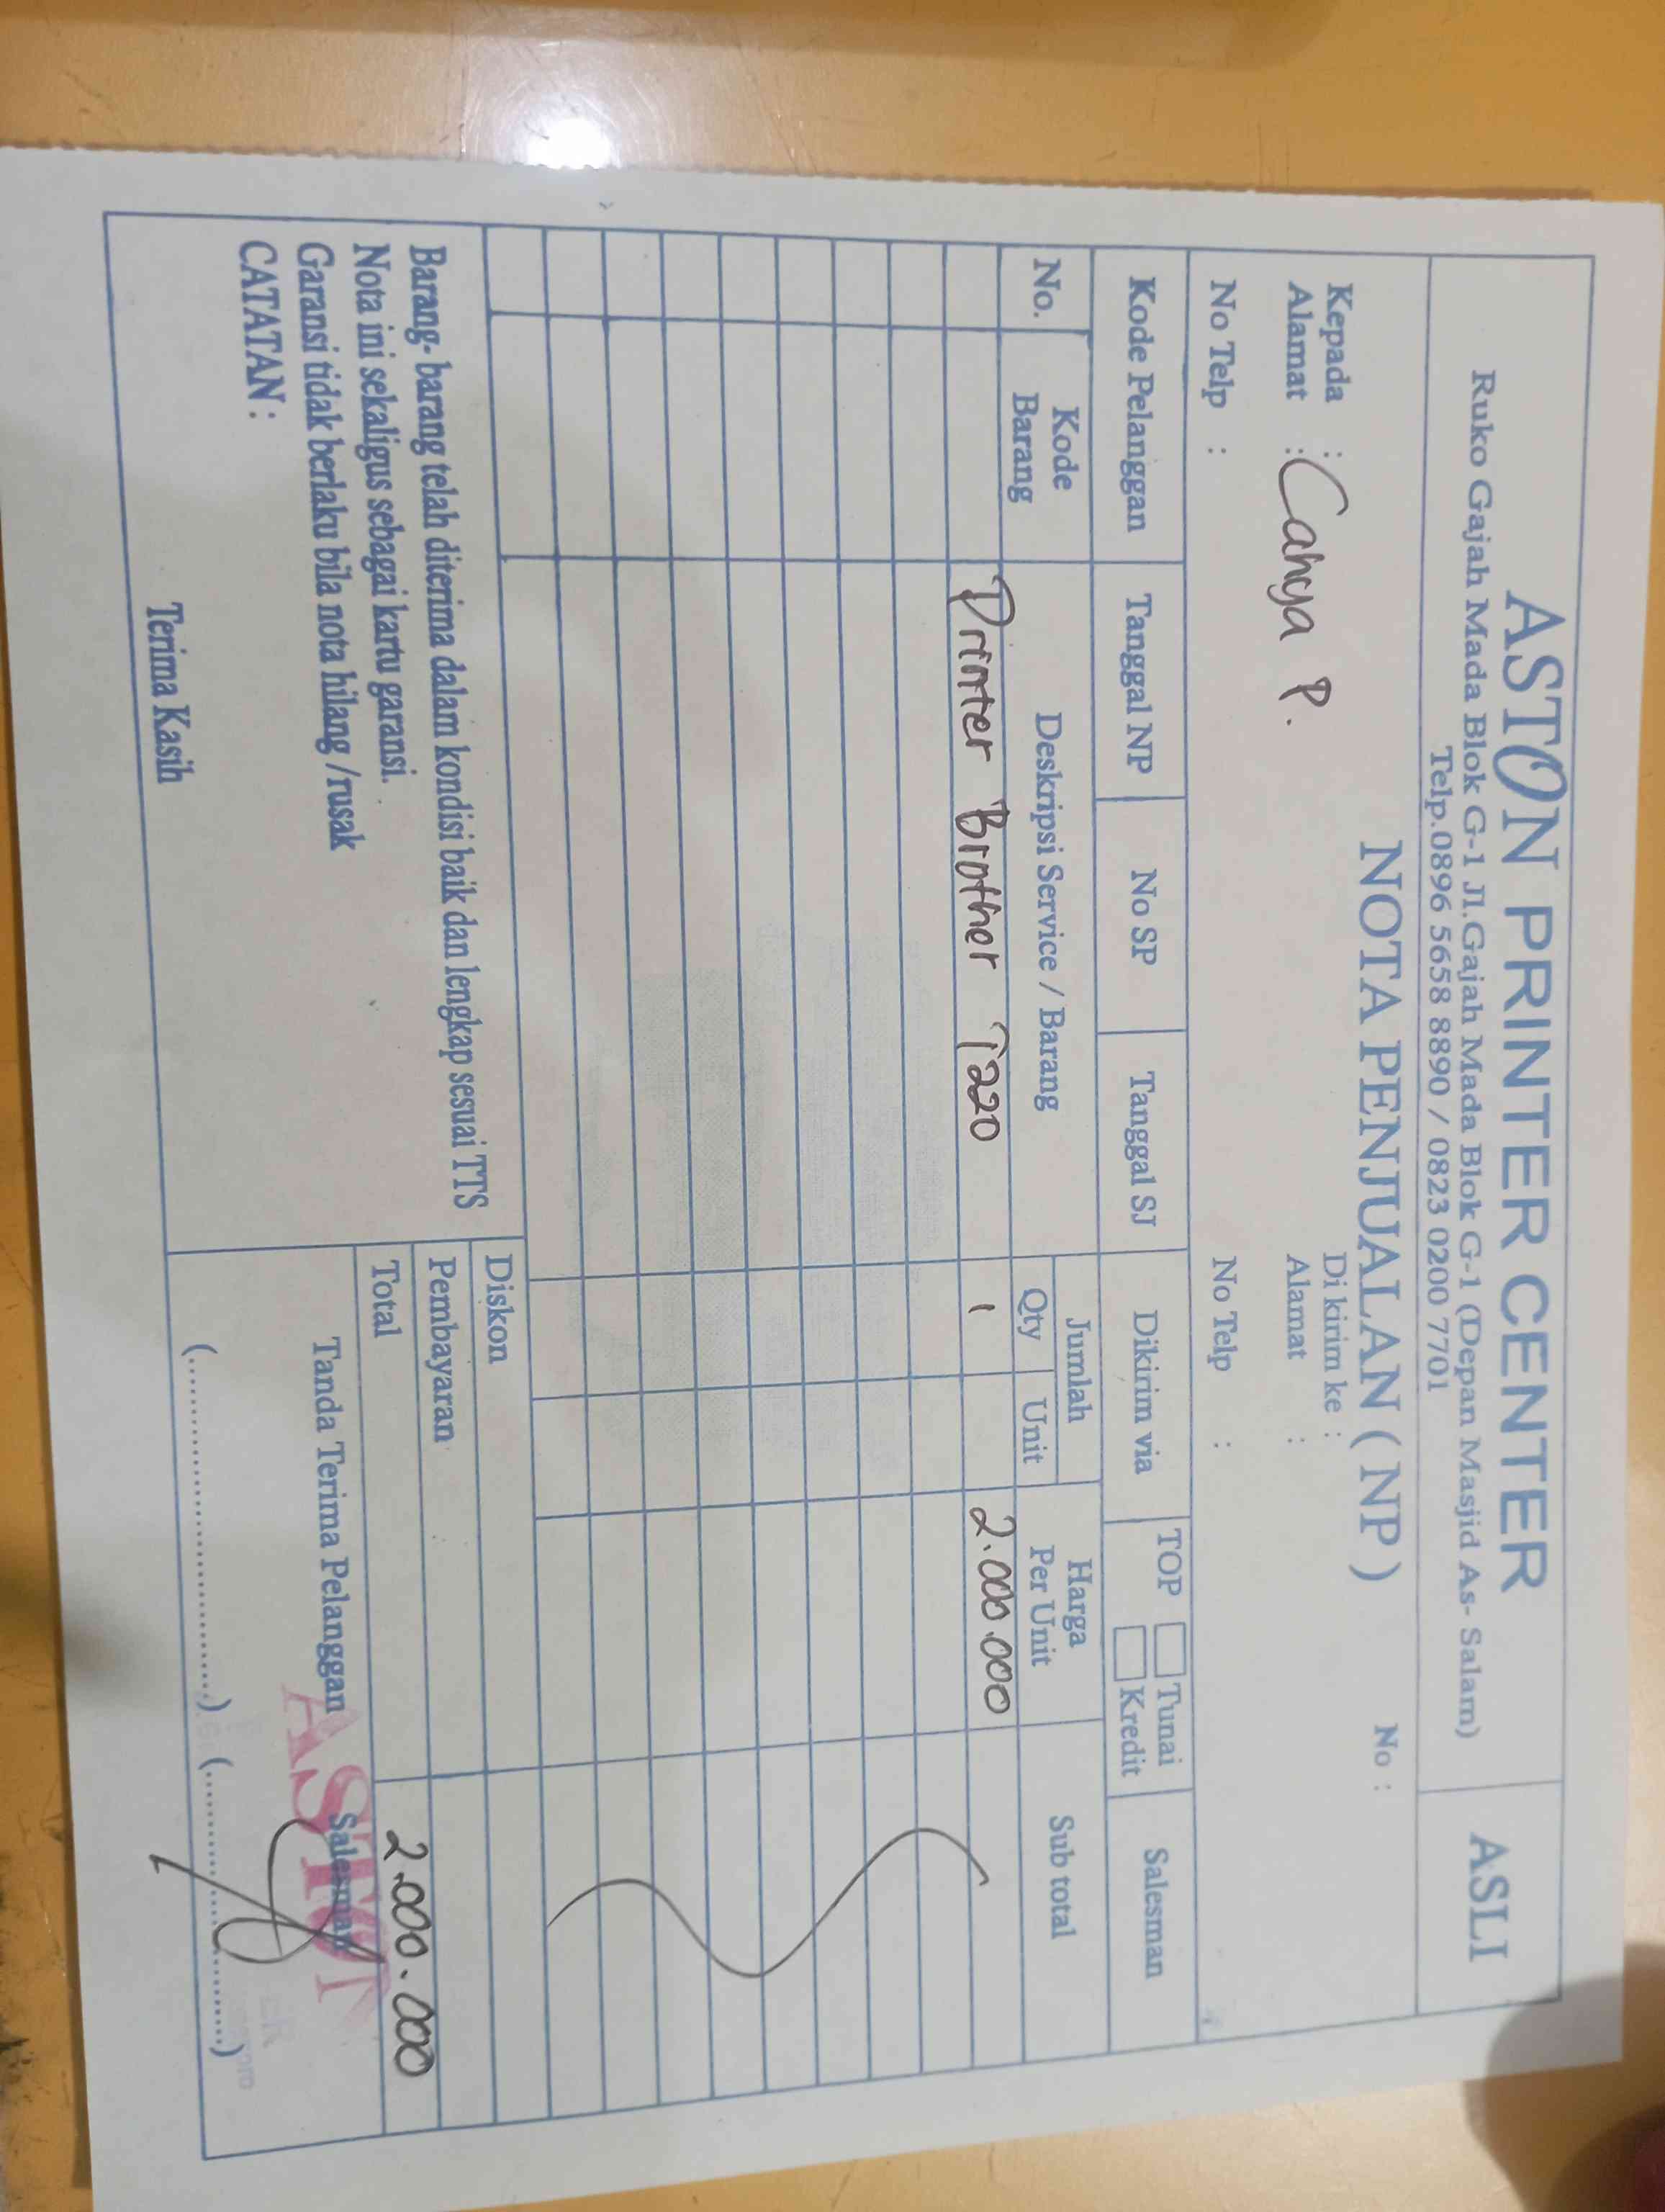 ASTON PRINTER CENTER
Ruko Gajah Mada Blok G-1 Jl.Gajah Mada Blok G-1 (Depan Masjid As- Salam)
Telp.0896 5658 8890 / 0823 0200 7701
ASLI
NOTA PENJUALAN ( NP )
No :
Kepada :
Alamat : Cahya P.
No Telp :
Di kirim ke :
Alamat :
No Telp :
Kode Pelanggan Tanggal NP No SP Tanggal SJ Dikirim via TOP Tunai Kredit Salesman
No. Kode Barang Deskripsi Service / Barang Jumlah Qty Unit Harga Per Unit Sub total
Printer Brother T220 1 2.000.000
Diskon
Pembayaran
Total 2.000.000
Barang- barang telah diterima dalam kondisi baik dan lengkap sesuai TTS
Nota ini sekaligus sebagai kartu garansi.
Garansi tidak berlaku bila nota hilang /rusak
CATATAN :
Terima Kasih
Tanda Terima Pelanggan Salesman
(..............................) (..............................)